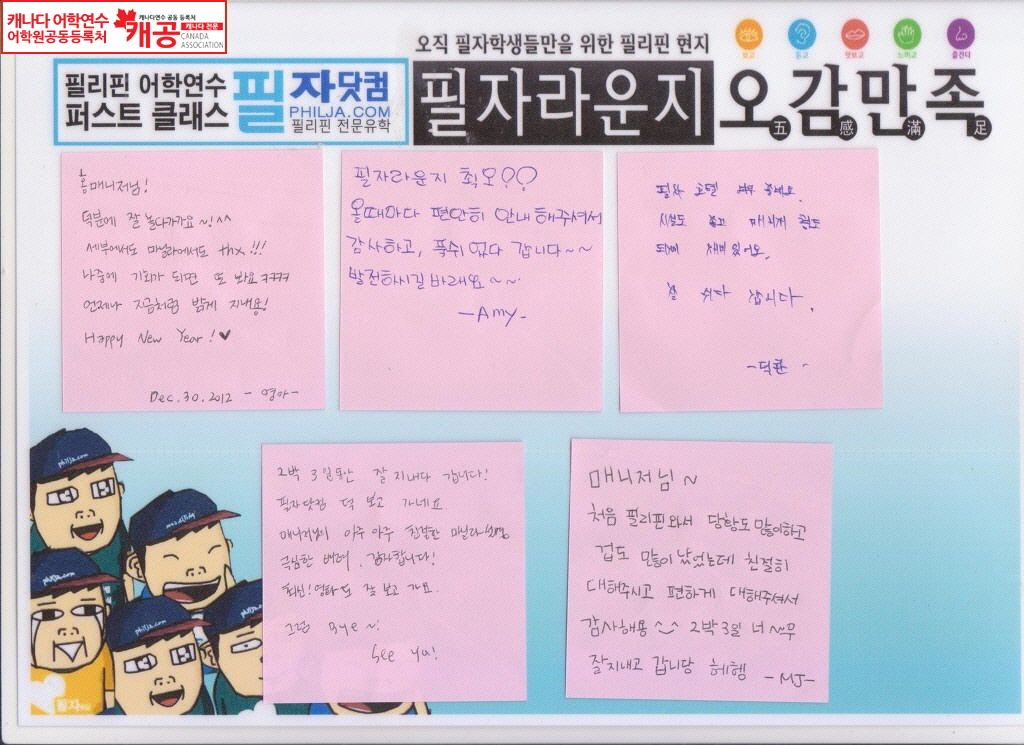 캐나다 어학연수
어학원공동등록처
캐나다연수 공동 등록처
캐공 캐나다 전문
CANADA
ASSOCIATION
오직 필자학생들만을 위한 필리핀 현지
보고 듣고 맛보고 느끼고 즐긴다
필리핀 어학연수
퍼스트 클래스
필자닷컴
PHILJA.COM
필리핀 전문유학
필자라운지
오감만족
五 感 滿 足
홍매니저님!
덕분에 잘 놀다가가요~!^^
세부에서도 마닐라에서도 thx!!!
나중에 기회가 되면 또 봐요ㅋㅋㅋㅋ
언제나 지금처럼 밝게 지내용!
Happy New Year!♥
Dec.30.2012 - 영아-
필자라운지 최고??
올때마다 편안히 안내해주셔서
감사하고, 푹쉬었다 갑니다~~
발전하시길 바래요~~.
-Amy-
필자 호텔 너무 좋네요.
시설도 좋고 매니저 형도
되게 재미있어요.
잘 쉬다 갑시다.
2박 3일동안 잘 지내다 갑니다!
필자닷컴 덕 보고 가네요
매니저님의 아주 아주 친절한
극심한 배려, 감사합니다!
최신! 영화도 잘 보고 가요.
그럼 Bye~!
See ya!
매니저님~
처음 필리핀와서 당황도 많이하고
겁도 많이 났었는데 친절히
대해주시고 편하게 대해주셔서
감사해용 ^_^ 2박3일 너~무
잘지내고 갑니당 헤헷 -MJ-
philja.com
philja.com
philja.com
philja.com
philja.com
필자닷컴